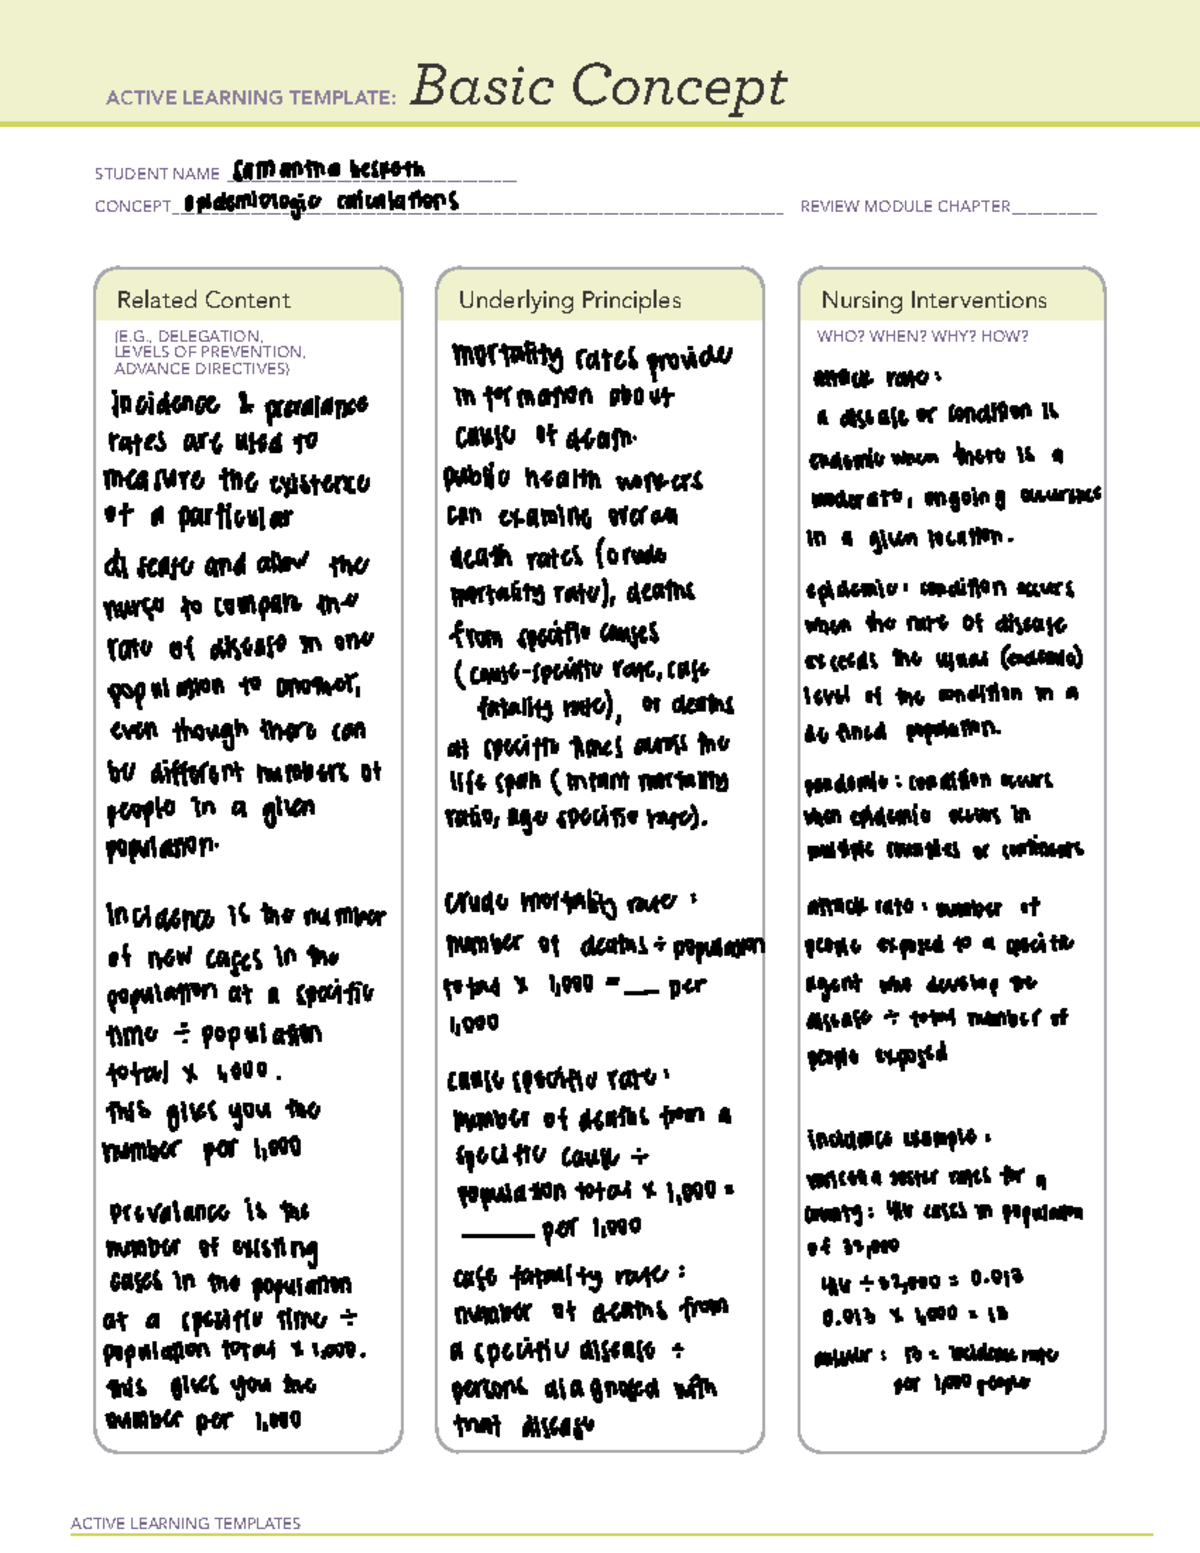 ACTIVE LEARNING TEMPLATE: Basic Concept
STUDENT NAME Samantha
CONCEPT epidemiologic calculations REVIEW MODULE CHAPTER
Related Content
(E.G., DELEGATION,
LEVELS OF PREVENTION,
ADVANCE DIRECTIVES)
incidence & prevalance
rates are used to
measure the existence
of a particular
disease and allow the
nurse to compare the
rate of disease in one
population to another,
even though there can
be different numbers of
people in a given
population.
incidence is the number
of new cases in the
population at a specific
time ÷ population
total x 1,000.
this gives you the
number per 1,000
prevalance is the
number of existing
cases in the population
at a specific time ÷
population total x 1,000.
this gives you the
number per 1,000
Underlying Principles
mortality rates provide
information about
cause of death.
public health workers
can examine overall
death rates (crude
mortality rate), deaths
from specific causes
(cause-specific rate, case
fatality rate), or deaths
at specific times across the
life span (infant mortality
ratio, age specific rate).
crude mortality rate:
number of deaths ÷ population
total x 1,000 = __ per
1,000
cause specific rate:
number of deaths from a
specific cause ÷
population total x 1,000 =
____ per 1,000
case fatality rate:
number of deaths from
a specific disease ÷
persons diagnosed with
that disease
Nursing Interventions
WHO? WHEN? WHY? HOW?
attack rate:
a disease or condition is
endemic when there is a
moderate, ongoing
in a given location.
epidemic: condition occurs
when the rate of disease
exceeds the usual (endemic)
level of the condition in a
defined population.
pandemic: condition occurs
when epidemic occurs in
multiple countries or continents
attack rate: number of
people exposed to a specific
agent who develop the
disease ÷ total number of
people exposed
incidence example:
rates for a
county: cases in population
of 32,000
÷ 32,000 = 0.013
0.013 x 1,000 = 13
answer: 13 = incidence rate
per 1,000 people
ACTIVE LEARNING TEMPLATES